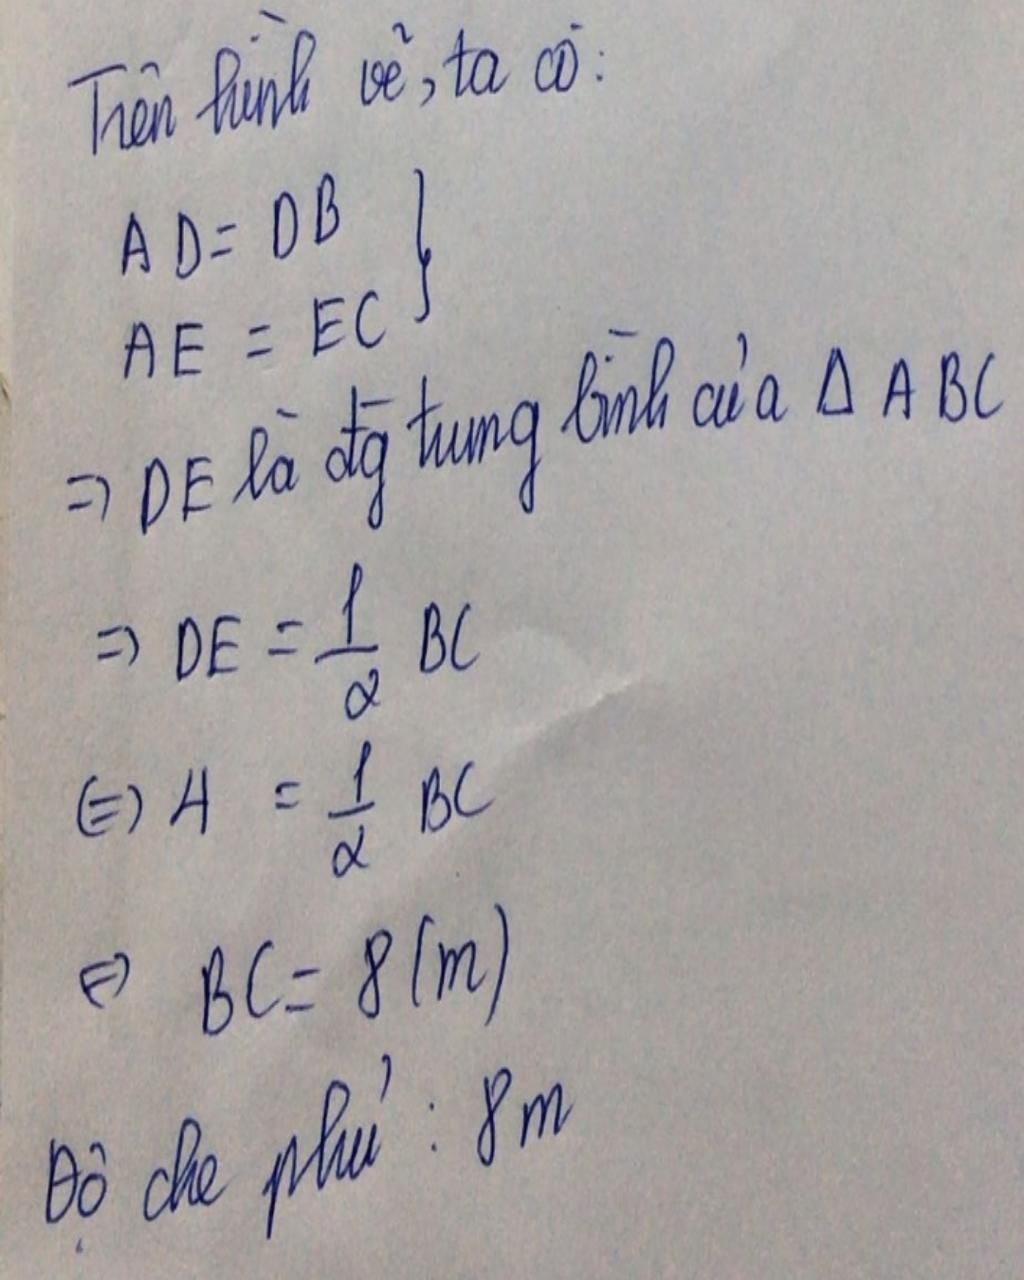 Trên hình vẽ, ta có:
AD = DB }
AE = EC
=> DE là đg trung bình của Δ ABC
=> DE = 1/2 BC
<=> 4 = 1/2 BC
<=> BC = 8 (m)
Độ che phủ : 8m